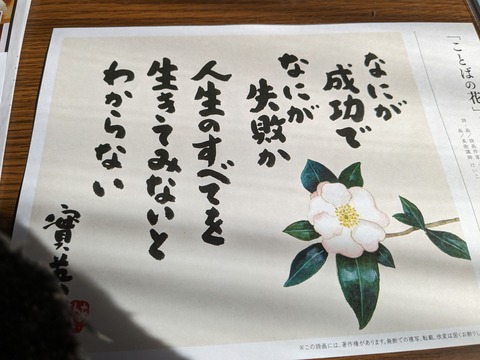 「ことばの花」
なにが
成功で
なにが
失敗か
人生のすべてを
生きてみないと
わからない
※この詩画には、著作権があります。無断での複写、転載、改変は固くお断りし